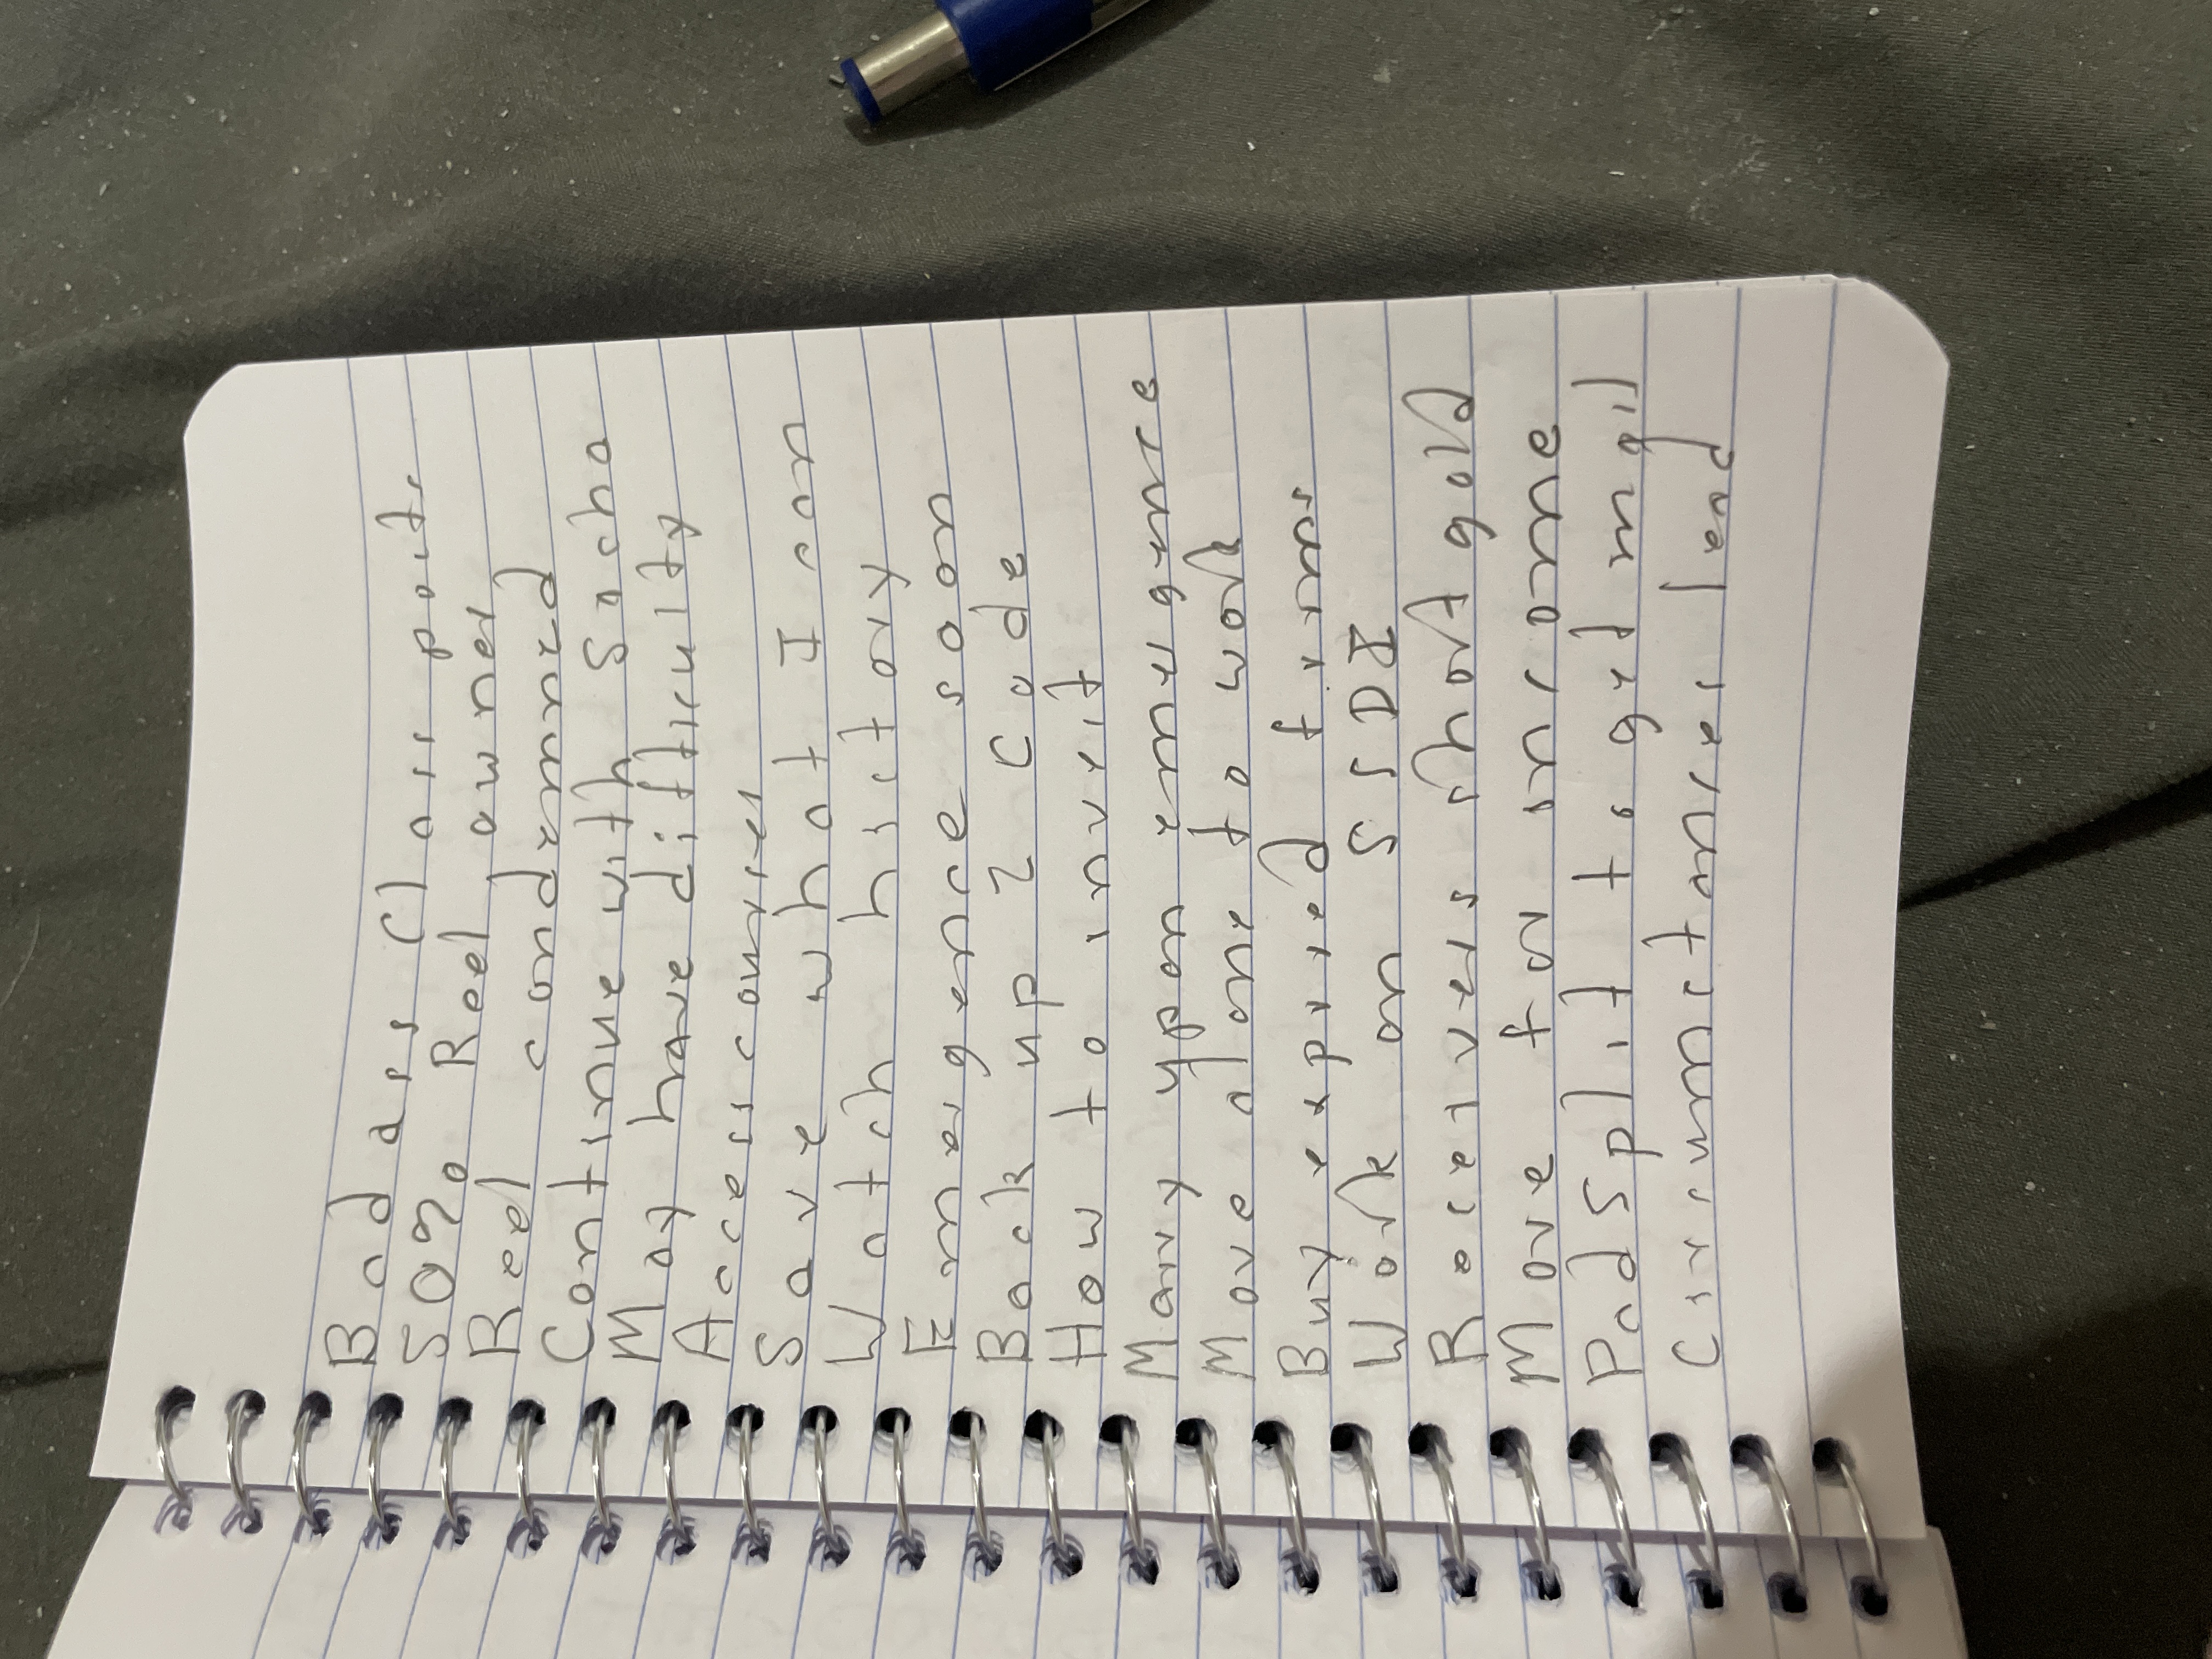 Bad ass Cl ass parts
50% Reel owner
Reel condemned
Continue with Sacha
May have difficulty
Access courses
Save what I can
Watch history
Emergence soon
Back up 2 Code
How to invest
Marry upon emergence
Move alone to work
Buy expired firms
Work on SSDI
Receivers shot gold
Move for income
PadSplit to get mail
Circumstancial pad